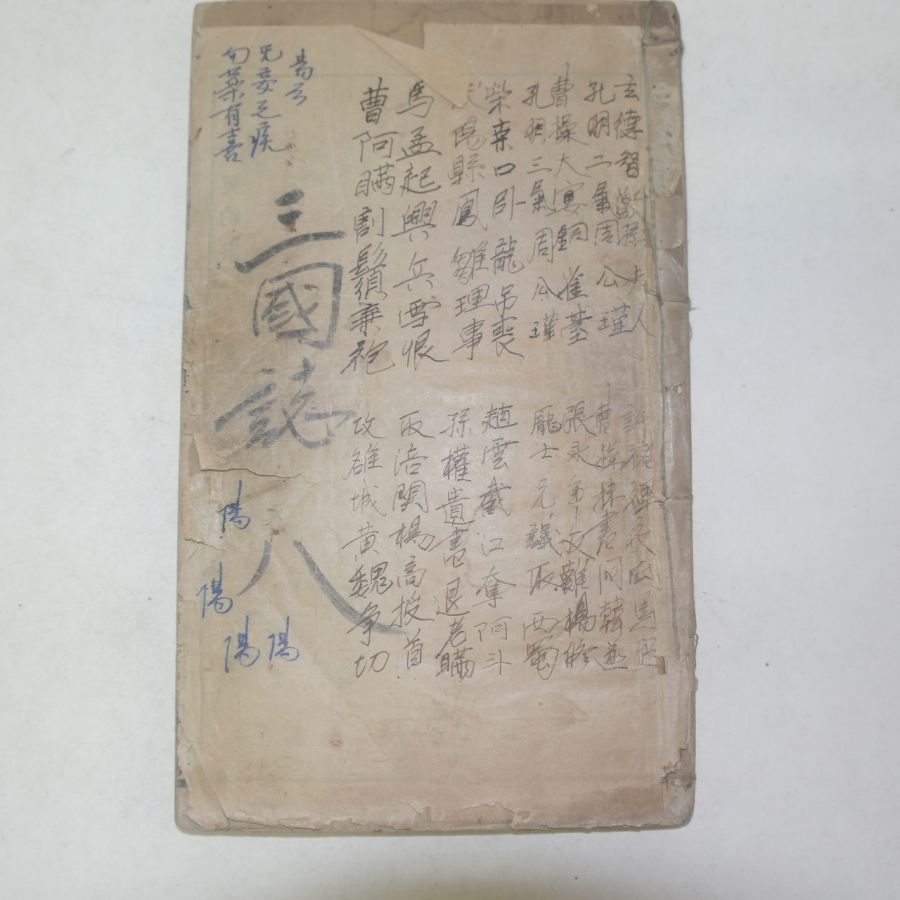 玄德智激孫夫人
孔明二氣周公瑾
曹操大宴銅雀臺
孔明三氣周公瑾
柴桒口卧龍吊丧
陽縣鳳雛理事
馬孟起興兵雪恨
曹阿瞞割鬚棄袍
許褚裸衣馬超
曹操抹書問韓遂
張永年反難楊修
龐士元議取西蜀
趙雲截江奪阿斗
孫權遺書退老瞞
取涪関楊高授首
攻雒城黃魏争切
易云
无妄之疾
勿藥有喜
三國誌 八
陽
陽
陽
陽